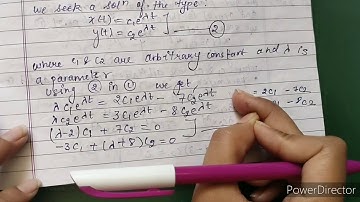 we seek a solⁿ of the type:
x(t) = c₁e^λt
y(t) = c₂e^λt ] — ②
where c₁ & c₂ are arbitrary constant and λ is
a parameter
Using ② in ① we get,
λc₁e^λt = 2c₁e^λt − 7c₂e^λt = 2c₁ − 7c₂
λc₂e^λt = 3c₁e^λt − 8c₂e^λt c₁ − 8c₂
(λ−2)c₁ + 7c₂ = 0
−3c₁ + (λ+8)c₂ = 0
PowerDirector